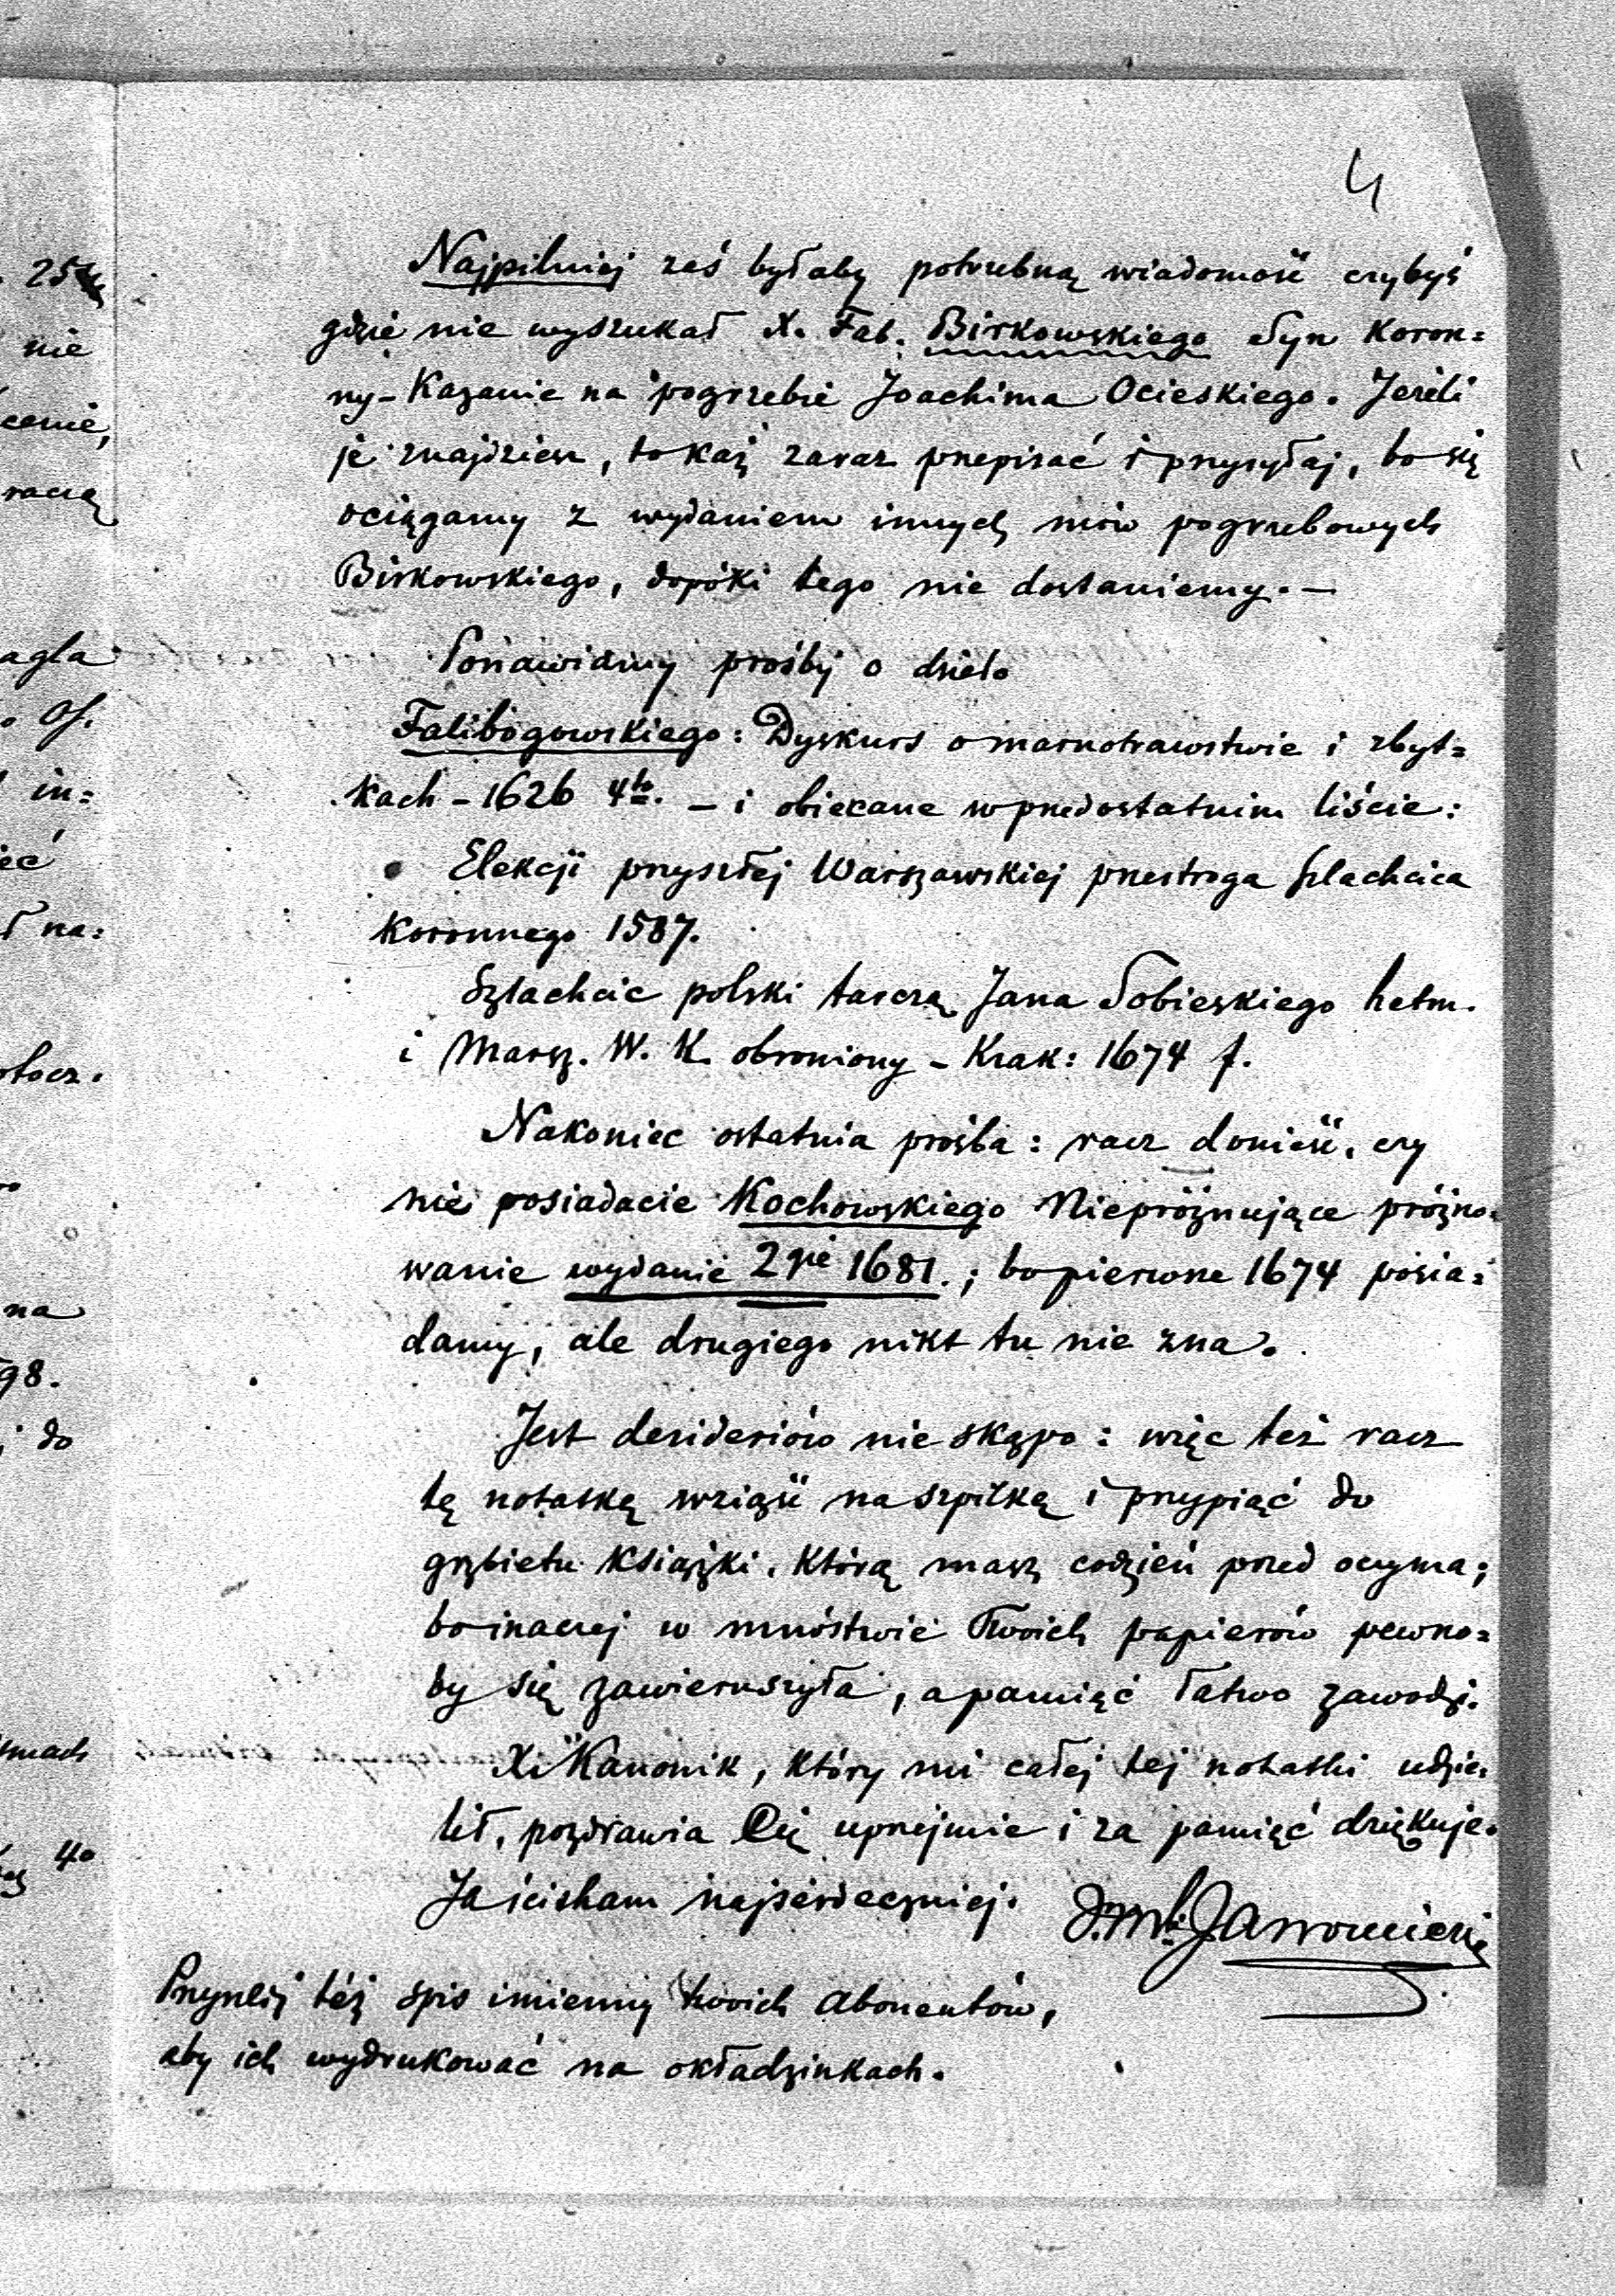 4
Najpilniej zaś byłaby potrzebną wiadomość czybyś
gdzie nie wyszukał X. Fab. Birkowskiego Syn Koron=
ny - Kazanie na pogrzebie Joachima Ocieskiego. Jeżeli
je znajdziesz, to każ zaraz przepisać i przysyłaj, bo się
ociągamy z wydaniem innych mów pogrzebowych
Birkowskiego, dopóki tego nie dostaniemy. —
Ponawiamy prośby o dzieło
Falibogowskiego: Dyskurs o marnotrawstwie i zbyt=
kach - 1626 4to. — i obiecane w przedostatnim liście:
Elekcji przyszłej Warszawskiej przestroga szlachcica
Koronnego 1587.
Szlachcic polski tarczą Jana Sobieskiego hetm.
i Marsz. W. K. obroniony - Krak: 1674 f.
Nakoniec ostatnia prośba: racz donieść, czy
nie posiadacie Kochowskiego Niepróżnujące próżno=
wanie wydanie 2gie 1681.; bo pierwsze 1674 posia=
damy, ale drugiego nikt tu nie zna.
Jest desideriów nie skąpo: więc też racz
tę notatkę wziąść na szpilkę i przypiąć do
grzbietu książki, którą masz codzień przed oczyma;
bo inaczej w mnóstwie Twoich papierów pewno=
by się zawieruszyła, a pamięć łatwo zawodzi.
X. Kanonik, który mi całej tej notatki udzie=
lił, pozdrawia Cię uprzejmie i za pamięć dziękuje.
Ja ściskam najserdeczniej.
Przyszlij też spis imienny twoich abonentów,
aby ich wydrukować na okładzinkach.
25
nie
cenie,
racią
agla
of.
in=
ieć
ł na=
otocz.
na
98.
do
smach
40